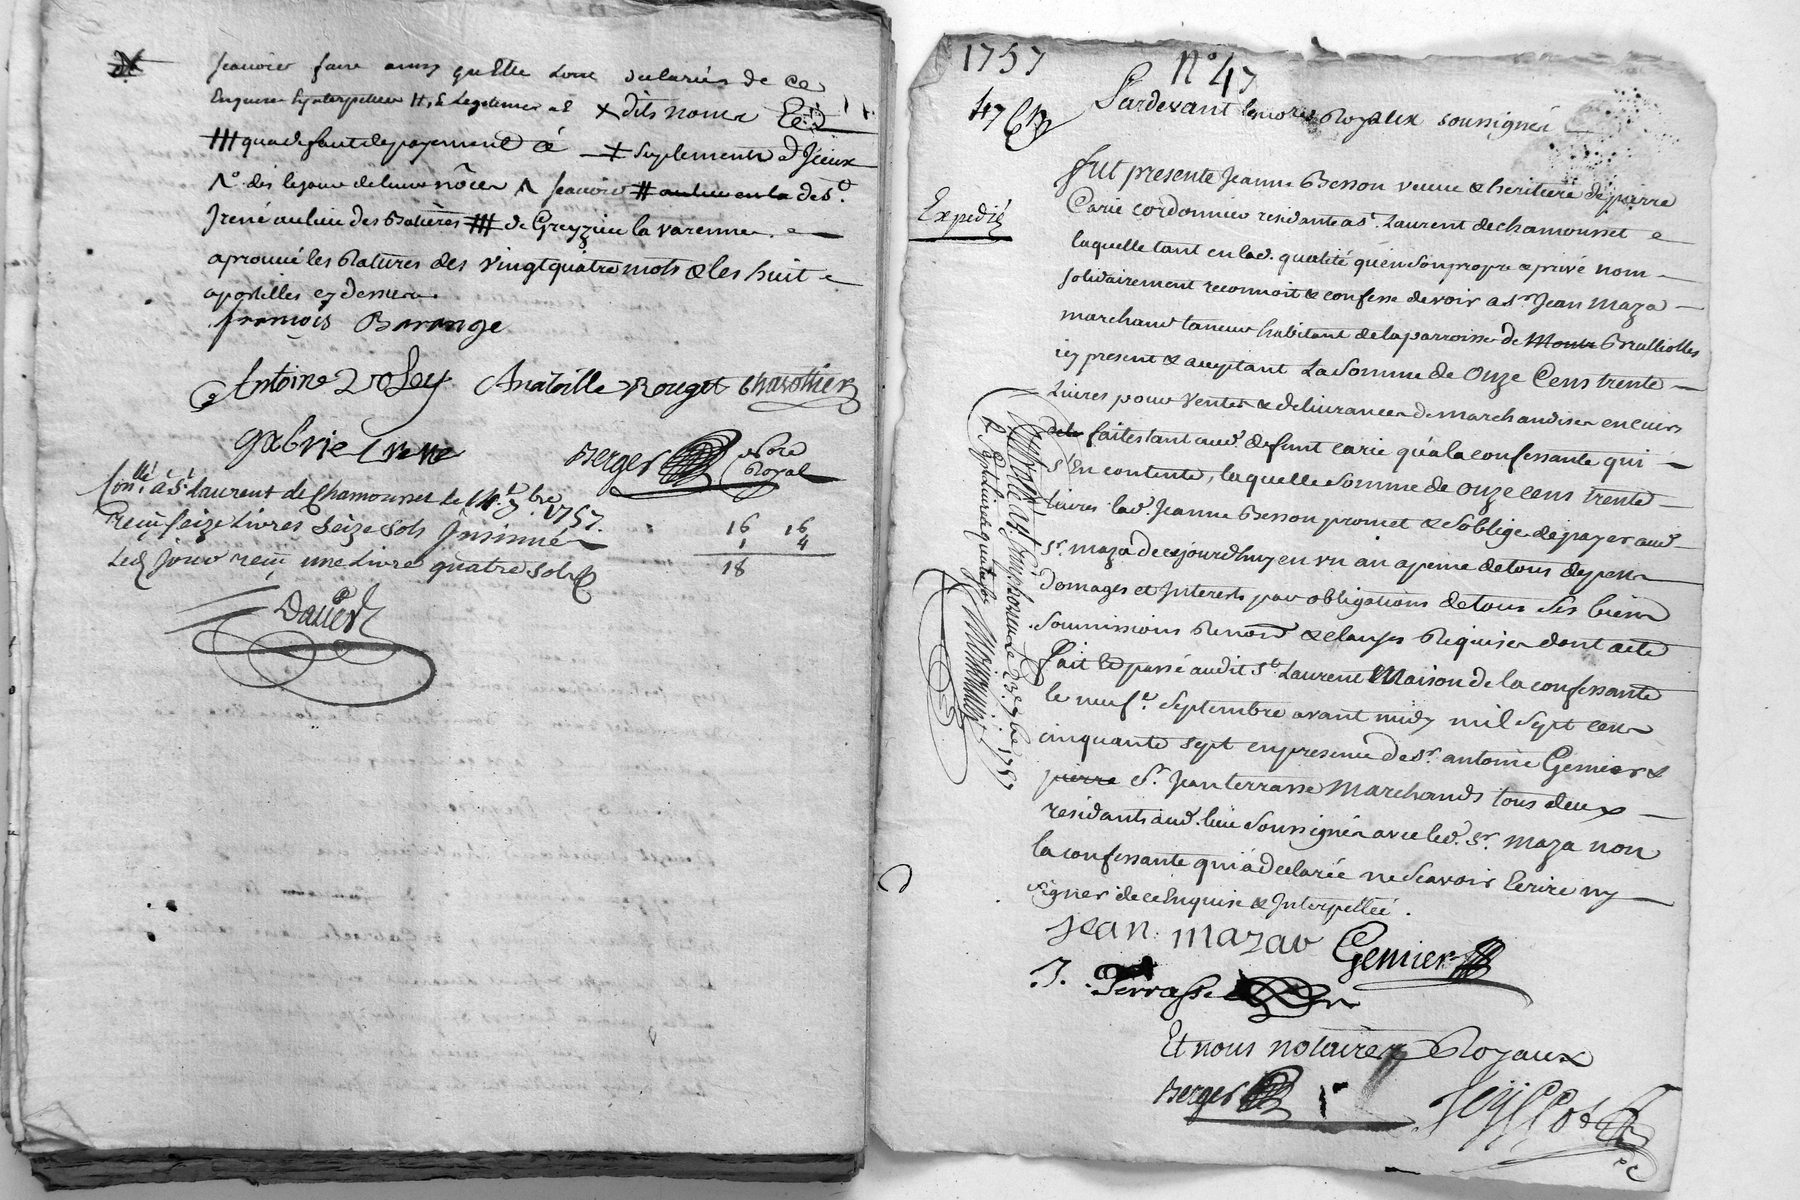 scauoir faire ainsy quelle ont declarées de ce
enquises & interpellées H, & Legitimes al X dits nomx
qua defaut de payement & supléments & Jceux
N° des le jour de leurs nôces scauoir au lieu en la de St.
Jrené au lieu des Ratières de Greyzieu la varenne.
aprouué les Ratures des vingtquatre mots & les huit
apostilles cy dessus.
françois Barange
Antoine Anatoille Rougit Chazottier
gabrie
Berger Nore
Royal
Con.llé à St. Laurent de Chamousset le 14e 7bre 1757.
reçu seize Livres seize sols Jnsinué 16 16
Led jour reçu une Livre quatre sols 1 4
18
Dauier
1757 N° 47
47
Pardevant les no.res Royaux soussignés
Expedié
fut presente Jeanne Besson veuve & heritiere de pierre
Carie cordonnier residante a St. Laurent de chamousset
laquelle tant en lad. qualité qu'en son propre & privé nom
solidairement reconnoit & confesse devoir a Sr. Jean Maza
marchand tanneur habitant de la parroisse de Montr Brulliolles
icy present & acceptant La Somme de Onze Cens trente
Livres pour ventes & delivrances de marchandises en cuirs
dela faites tant aud. defunt carie qu'a la confessante qui
s'en contente, laquelle somme de onze cens trente
livres lad. Jeanne Besson promet & s'oblige de payer aud.
Sr. maza de cejourdhuy en un an a peine de tous depens
domages et Interests par obligations de tous ses biens
soumissions Renon.s & clauses Requises dont acte
Fait & passé audit St. Laurent Maison de la confessante
le neuf.e Septembre avant midy mil sept cens
cinquante sept en presence de Sr. antoine Gemier &
pierre Sr. Jean terrasse Marchands tous deux
residants aud. lieu Soussignés avec led. Sr. maza non
la confessante qui a declarée ne scavoir Ecrire ny
signer de ce Enquise & Interpellée.
Controllé a St. Simphorien le 23e 7bre 1757
R Sept Livres quatre sols
Jean mazau Gemier
J. Terrasse
Et nous notaires Royaux
Berger